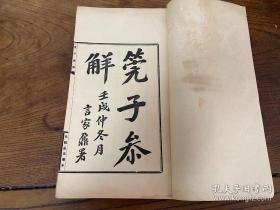 筦子叅
觧
壬戌仲冬月
言家鼐署
孔夫子旧书网